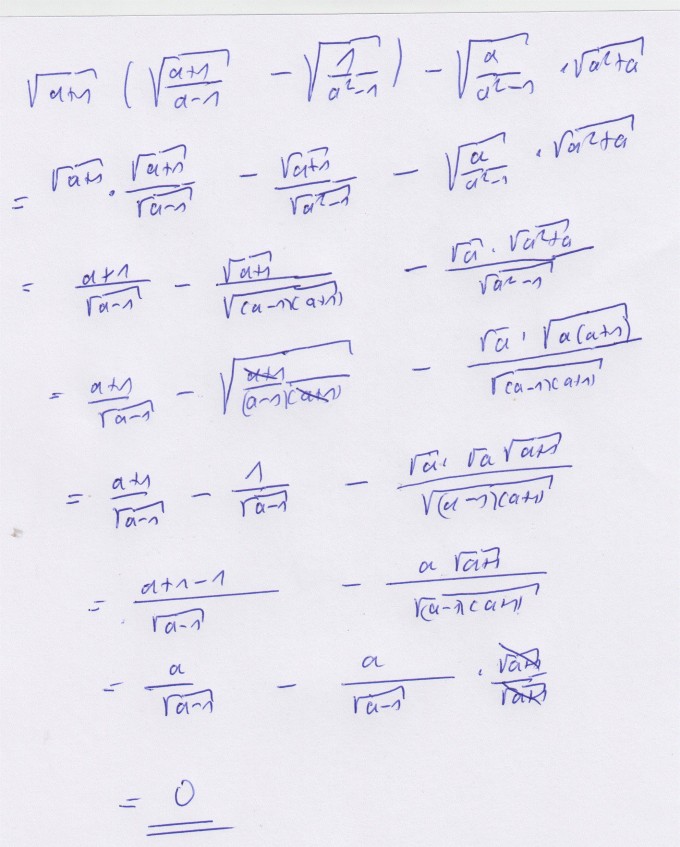 √(a+1) ( √((a+1)/(a-1)) - √(1/(a²-1)) ) - √(a/(a²-1)) · √(a²+a)
= √(a+1) · √(a+1)/√(a-1) - √(a+1)/√(a²-1) - √(a/(a²-1)) · √(a²+a)
= (a+1)/√(a-1) - √(a+1)/√((a-1)(a+1)) - (√a · √(a²+a))/√(a²-1)
= (a+1)/√(a-1) - √((a+1)/((a-1)(a+1))) - (√a · √(a(a+1)))/√((a-1)(a+1))
= (a+1)/√(a-1) - 1/√(a-1) - (√a · √a √(a+1))/√((a-1)(a+1))
= (a+1-1)/√(a-1) - (a √(a+1))/√((a-1)(a+1))
= a/√(a-1) - a/√(a-1) · √(a+1)/√(a+1)
= 0